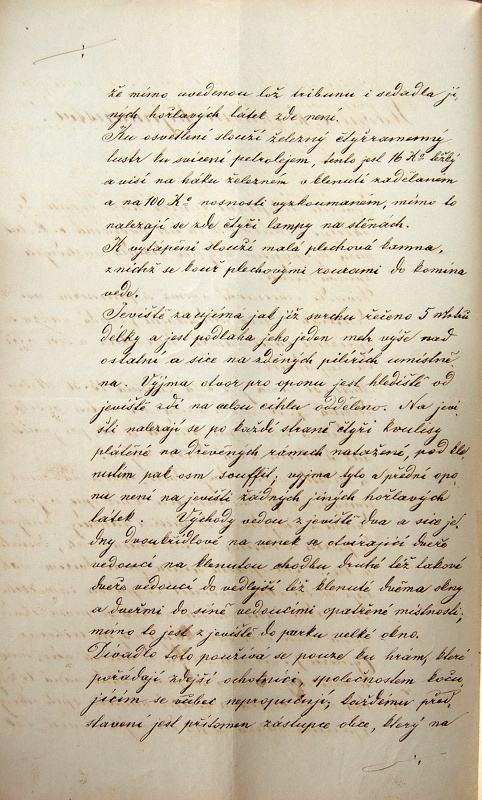 že mimo uvedenou lož tribunu i sedadla ji-
ných hořlavých látek zde není.
Ku osvětlení slouží železný čtyřramenný
lustr ku svícení petrolejem, tento jest 16 Ko těžký
a visí na háku železném v klenutí zadělaném
a na 100 Ko nosnosti vyzkoumaném, mimo to
nalezají se zde čtyři lampy na stěnách.
K vytápění slouží malá plechová kamna,
z nichž se kouř plechovými rourami do komína
vede.
Jeviště zaujímá jak již svrchu řečeno 5 metrů
délky a jest podlaha jeho jeden metr výše nad
ostatní a sice na zděných pilířích umístně-
na. Vyjma otvor pro oponu jest hlediště od
jeviště zdí na celou cihlu odděleno. Na jevi-
šti nalezají se po každé straně čtyři kulisy
plátěné na dřevěných rámech natažené, pod kle-
nutím pak osm souffit; vyjma tyto a přední opo-
nu není na jevišti žádných jiných hořlavých
látek. Východy vedou z jeviště dva a sice jed-
ny dvoukřídlové na venek se otvírající dveře
vedoucí na klenutou chodbu, druhé též takové
dveře vedoucí do vedlejší též klenuté dvěma okny
a dveřmi do síně vedoucími opatřené místnosti;
mimo to jest z jeviště do parku velké okno.
Divadlo toto používá se pouze ku hrám, které
pořádají zdejší ochotníci, společnostem koču-
jícím se vůbec nepropůjčuje; každému před-
stavení jest přítomen zástupce obce, který na